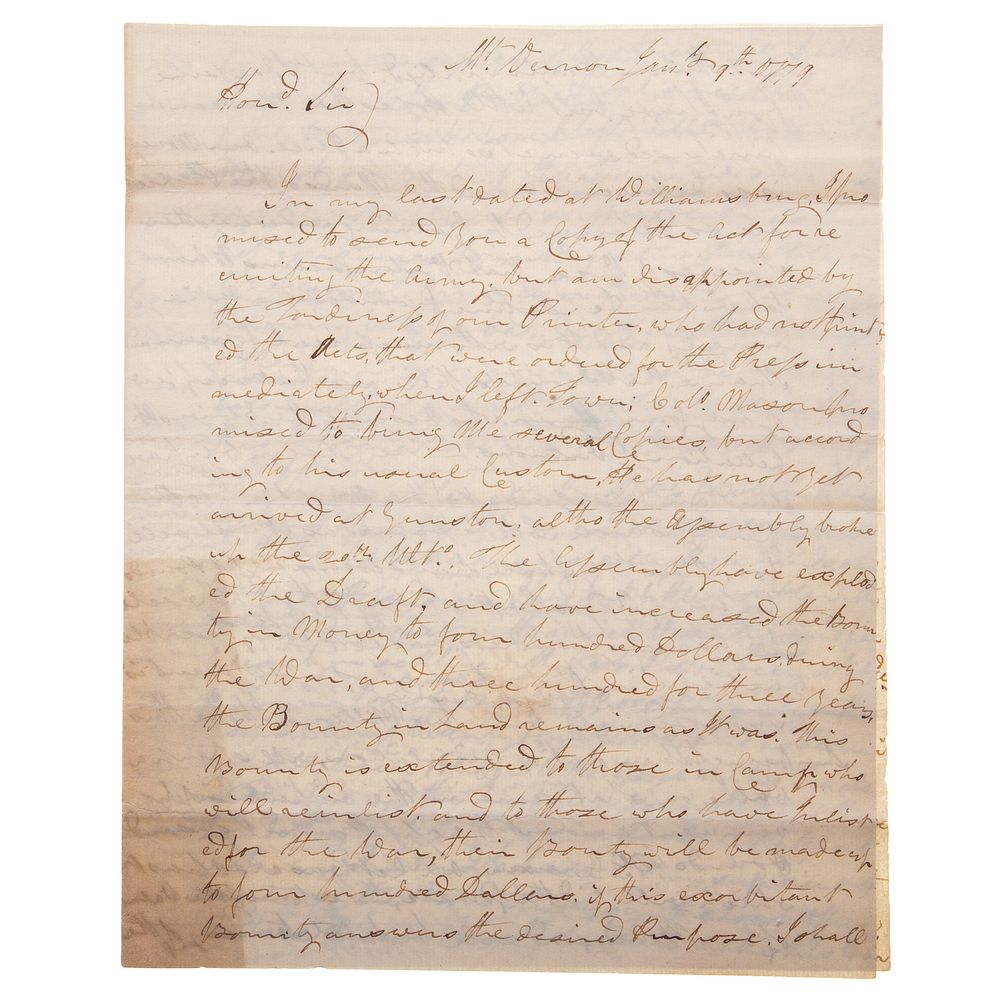 Mt. Vernon Jany. 9th. 1779
Hond. Sir
In my last dated at Williamsburg, I pro
mised to send you a Copy of the Act for re
cruiting the Army, but am disappointed by
the Tardiness of our Printer, who had not print
ed the Acts, that were ordered for the Press im
mediately, when I left Town; Colo. Mason pro
mised to bring me several Copies, but accord
ing to his usual Custom, He has not yet
arrived at Gunston, altho the Assembly broke
up the 20th Ulto. The Assembly have explod
ed the Draft, and have increased the Boun
ty in Money to four hundred Dollars, during
the War, and three hundred for three years,
the Bounty in Land remains as It was. This
Bounty is extended to those in Camp, who
will reinlist, and to those who have Inlist
ed for the War, their Bounty will be made up
to four hundred Dollars. if this exorbitant
Bounty answers the desired Purpose, I shall